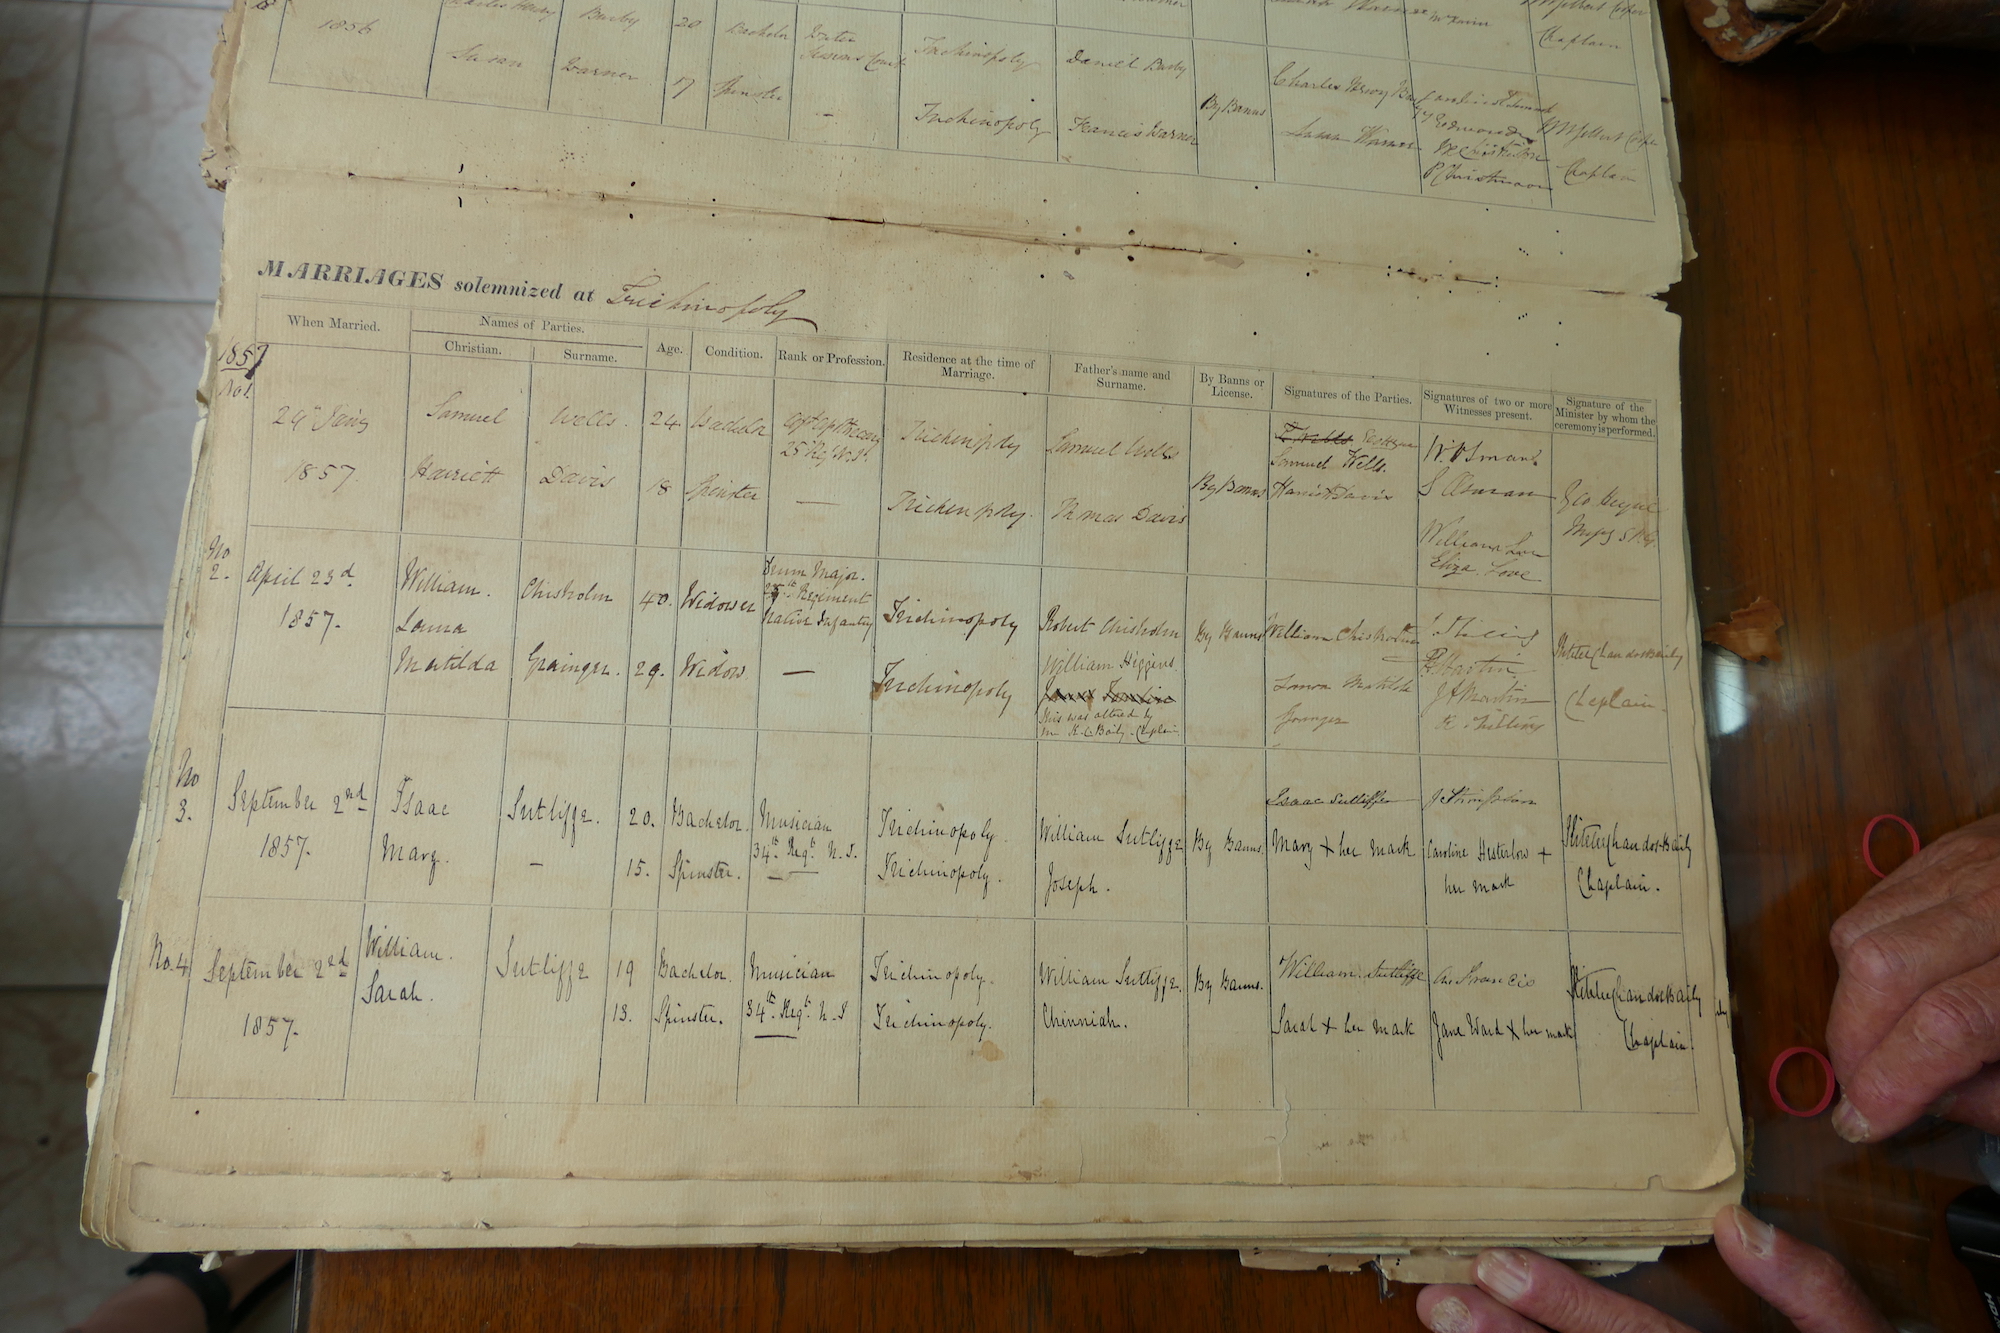 1856
Charles Henry Busby 20 Bachelor Writer Sessions Court Trichinopoly Daniel Busby
Chaplain
Susan Warner 17 Spinster — Trichinopoly Francis Warner By Banns
Susan Warner
Chaplain
MARRIAGES solemnized at Trichinopoly
When Married. Names of Parties. Age. Condition. Rank or Profession. Residence at the time of Marriage. Father's name and Surname. By Banns or License. Signatures of the Parties. Signatures of two or more Witnesses present. Signature of the Minister by whom the ceremony is performed.
Christian. Surname.
1857
No 1.
Samuel Wells. 24 Bachelor Trichinopoly Samuel Wells
1857. Harriett Davis 18 Spinster — Trichinopoly. Thomas Davis By Banns
Samuel Wells.
Harriet Davis
Eliza Love
No 2.
April 23d 1857.
William. Chisholm 40. Widower Drum Major. Regiment Native Infantry Trichinopoly Robert Chisholm By Banns William Chisholm
Laura Matilda Grainger. 29. Widow — Trichinopoly William Higgens.
This was altered by
Chaplain.
Laura Matilda
J A Martin
Chaplain.
No 3.
September 2nd 1857.
Isaac Sutliffe. 20. Bachelor. Musician 34th Regt N. I. Trichinopoly. William Sutliffe By Banns. Isaac Sutliffe
Mary. — 15. Spinster. — Trichinopoly. Joseph. Mary + her mark
Caroline Hesterlow + her mark
Chaplain.
No. 4.
September 2nd 1857.
William. Sutliffe 19 Bachelor. Musician 34th Regt N. I Trichinopoly. William Sutliffe. By Banns. William Sutliffe
Sarah. 13. Spinster. Trichinopoly. Chinniah. Sarah + her mark
Jane Ward + her mark
Chaplain.